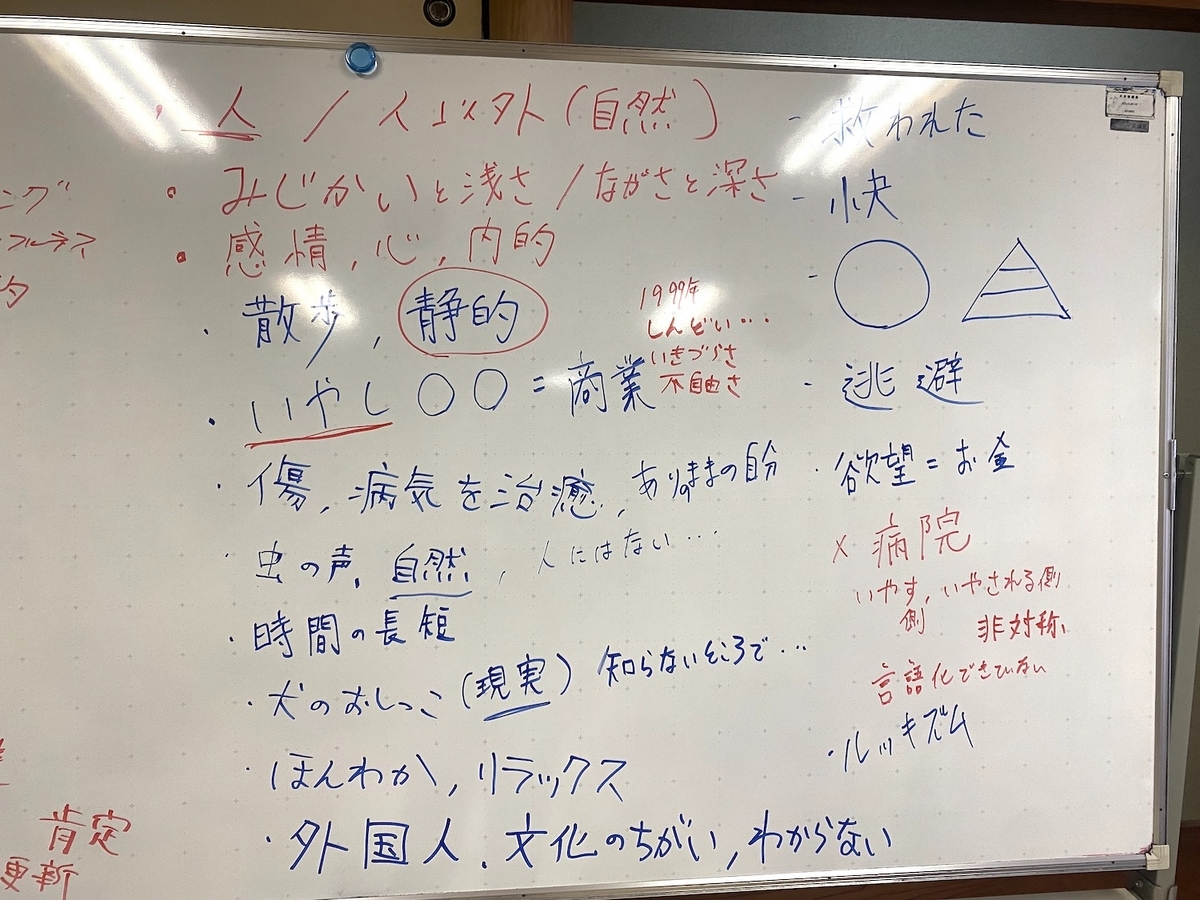 ング
フルネス
的
・人 / 人以外(自然)
・みじかいと浅さ / ながさと深さ
・感情, 心, 内的
・散歩, 静的
1999年
しんどい…
いきづらさ
不自由さ
・いやし〇〇=商業
・傷, 病気を治癒, ありのままの自分
・虫の声, 自然, 人にはない…
・時間の長短
・犬のおしっこ(現実) 知らないところで…
・ほんわか, リラックス
・外国人, 文化のちがい, わからない
肯定
更新
- 救われた
- 快
- 逃避
・欲望=お金
× 病院
いやす, いやされる側
側
非対称,
言語化できていない
・ルッキズム